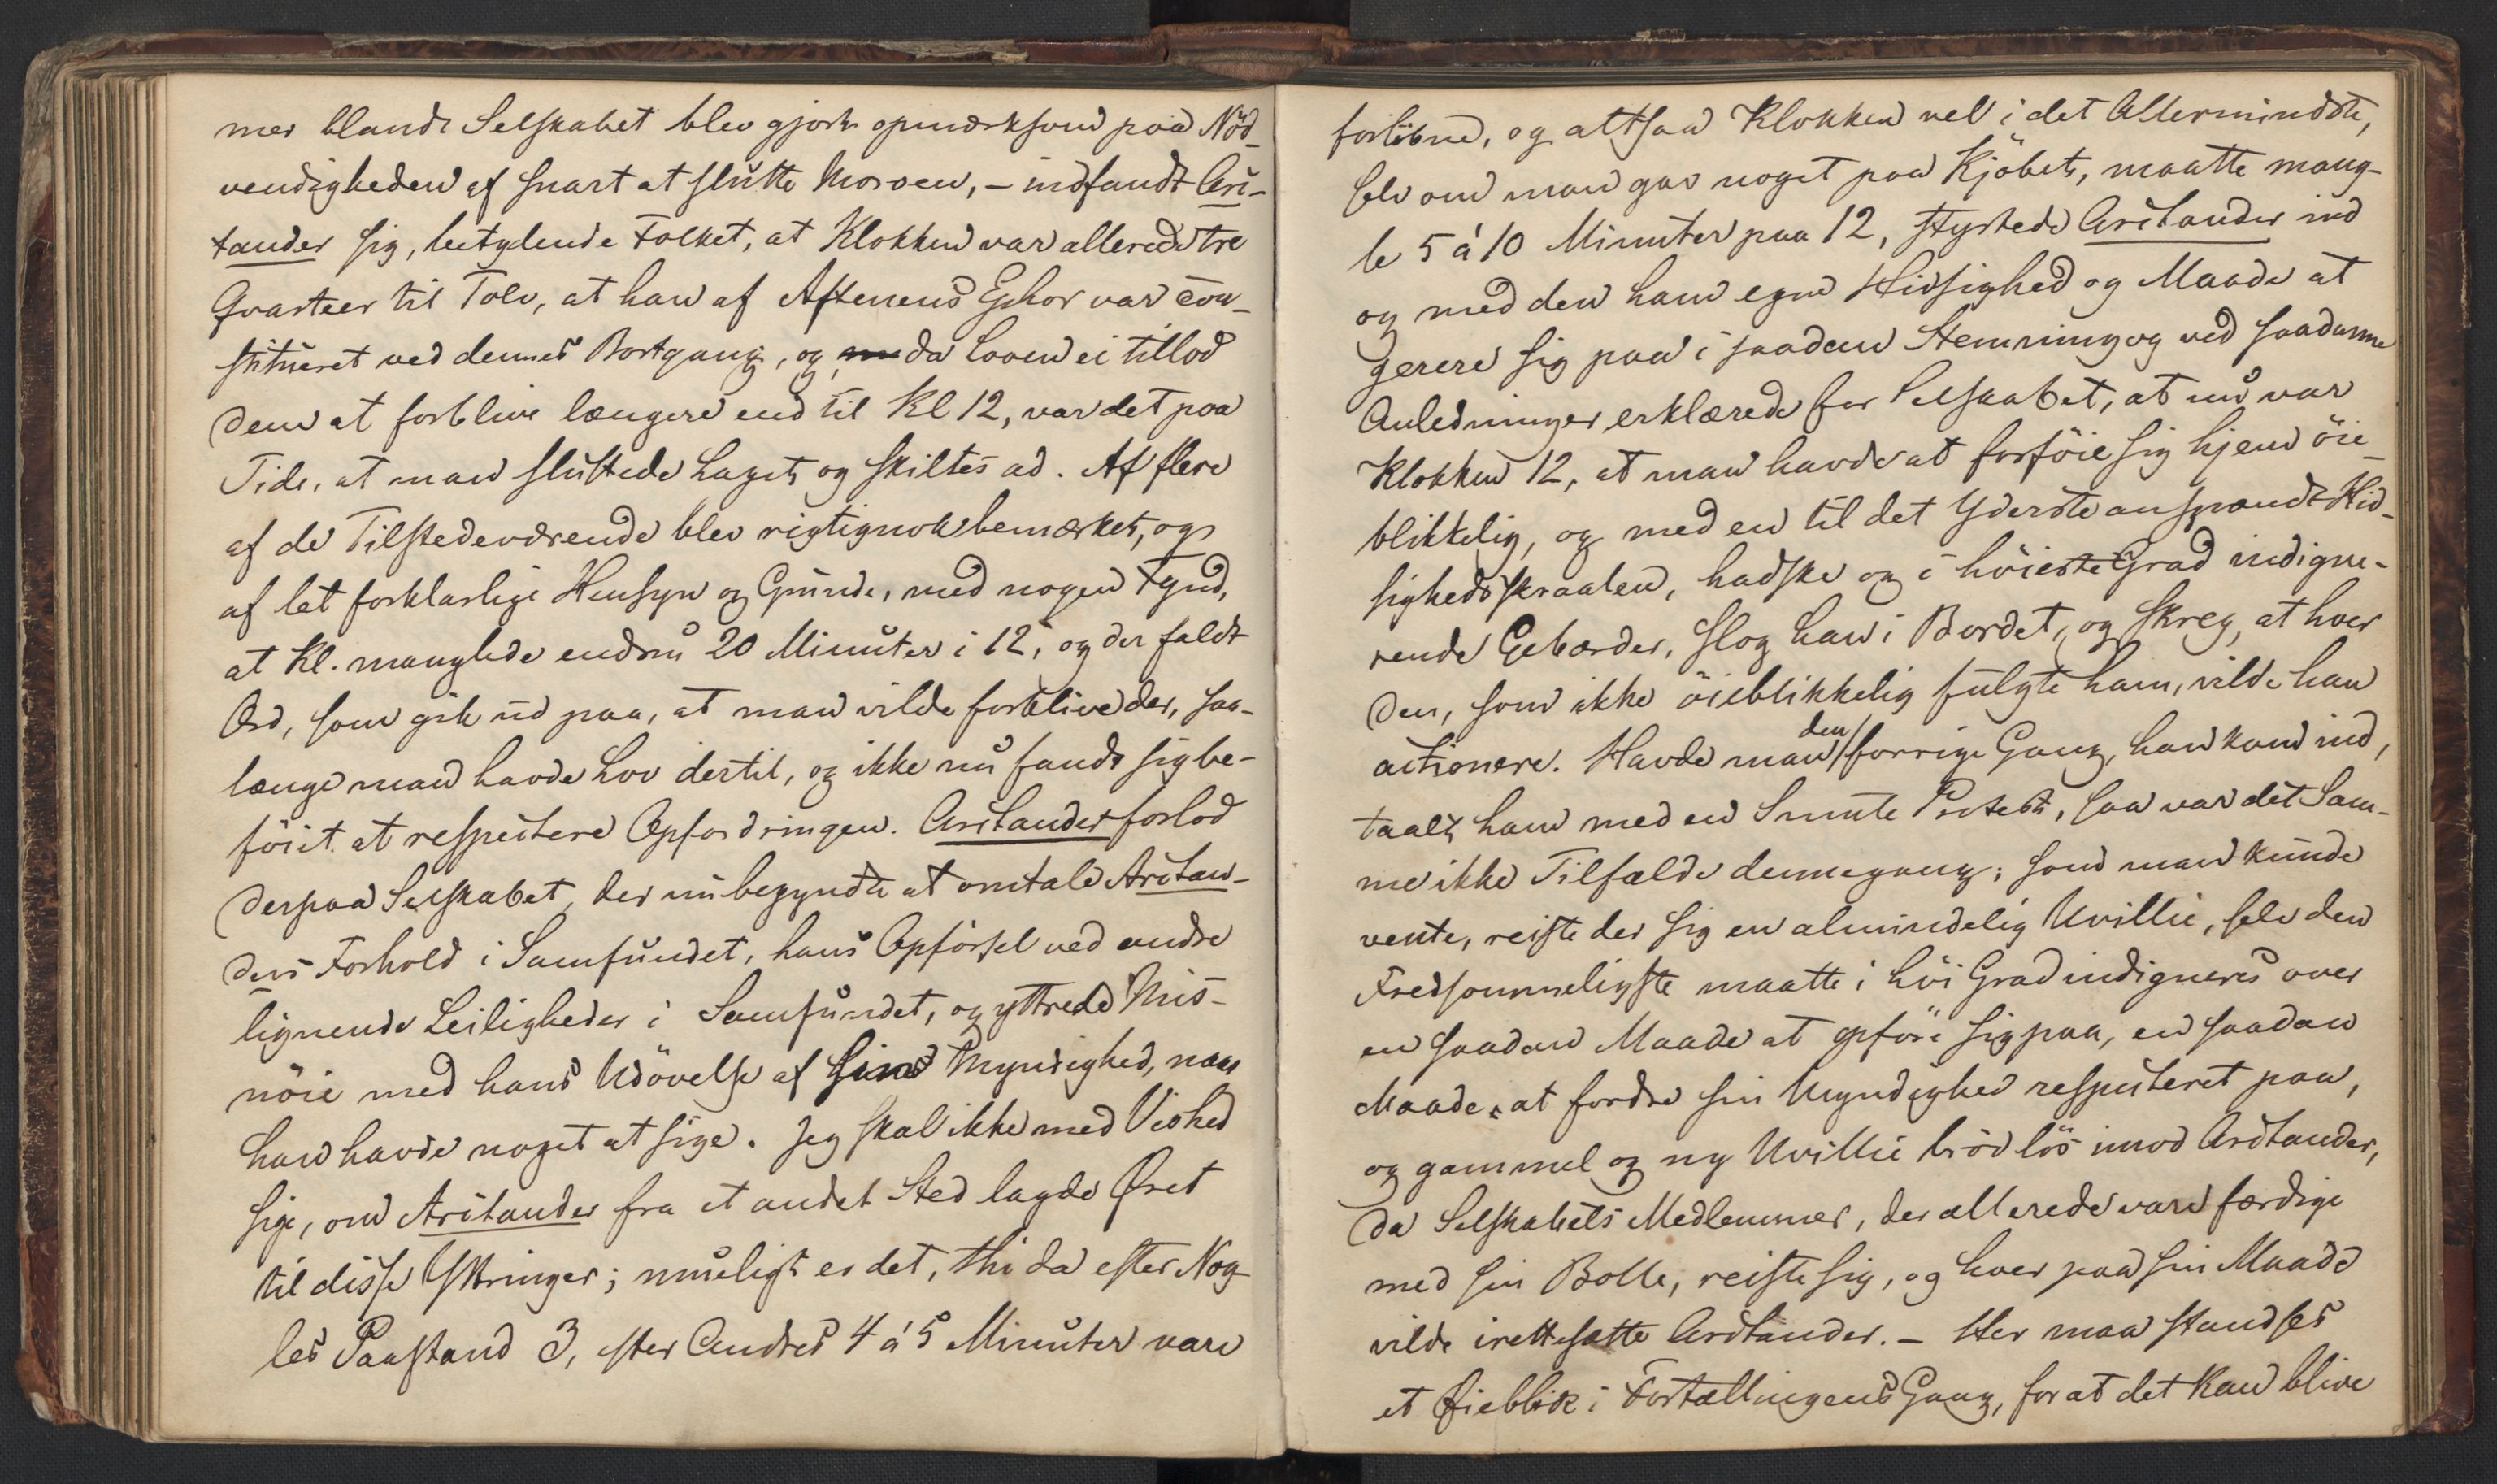 mer blandt Selskabet blev gjort opmærksom paa Nöd-
vendigheden af snart at slutte Moroen, – indfandt Ari-
stander sig, betydende Folket, at Klokken var allerede tre
Qvarteer til Tolv, at han af Aftenens Ephor var con-
stitueret ved dennes Bortgang, og da Loven ei tillod
dem at forblive længere end til Kl 12, var det paa
Tide, at man sluttede Laget og skiltes ad. Af flere
af de Tilstedeværende blev rigtignok bemærket, og
af let forklarlige Hensyn og Grunde, med nogen Fynd,
at Kl. manglede endnu 20 Minuter i 12, og der faldt
Ord, som gik ud paa, at man vilde forblive der, saa-
længe man havde Lov dertil, og ikke nu fandt sig be-
föiet at respectere Opfordringen. Aristander forlod
derpaa Selskabet, der nu begyndte at omtale Aristan-
ders Forhold i Samfundet, hans Opförsel ved andre
lignende Leiligheder i Samfundet, og yttrede Mis-
nöie med hans Udövelse af sin Myndighed, naar
han havde noget at sige. Jeg skal ikke med Vished
sige, om Aristander fra et andet Sted lagde Øret
til disse Yttringer; muligt er det, thi da efter Nog-
les Paastand 3, efter Andres 4 á 5 Minuter vare
forlöbne, og altsaa Klokken vel i det Allermindste,
selv om man gav noget paa Kjöbet, maatte mang-
le 5 á 10 Minuter paa 12, styrtede Aristander ind
og med den ham egne Hidsighed og Maade at
gerere sig paa i saadan Stemning og ved saadanne
Anledninger erklærede for Selskabet, at nu var
Klokken 12, at man havde at forföie sig hjem öie-
blikkelig, og med en til det Yderste anspændt Hid-
sighedsskraalen, hadske og i höieste Grad indigne-
rende Gebærder, slog han i Bordet, og skreg, at hver
den, som ikke öieblikkelig fulgte ham, vilde han
actionere. Havde man den forrige Gang, han kom ind,
taalt ham med en Smule Protest, saa var det Sam-
me ikke Tilfælde dennegang; som man kunde
vente, reiste der sig en almindelig Uvillie, selv den
Fredsommeligste maatte i höi Grad indigneres over
en saadan Maade at opföre sig paa, en saadan
Maade at fordre sin Myndighed respecteret paa,
og gammel og ny Uvillie bröd lös imod Aristander,
da Selskabets Medlemmer, der allerede vare færdige
med sin Bolle, reiste sig, og hver paa sin Maade
vilde irettesætte Aristander. – Her maa standses
et Øieblik i Fortællingens Gang, for at det kan blive